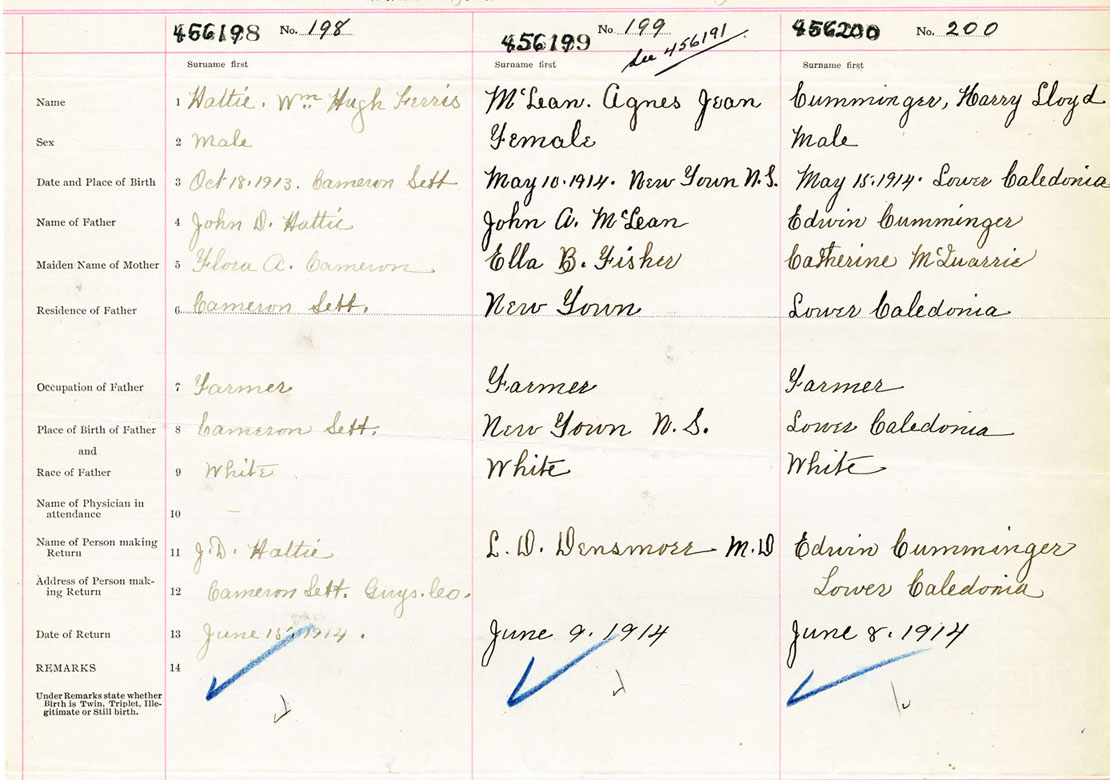 456198 No. 198 456199 No 199 456200 No. 200
See 456191
Surname first Surname first Surname first
Name 1 Hattie. Wm Hugh Ferris McLean. Agnes Jean Cumminger, Harry Lloyd
Sex 2 Male Female Male
Date and Place of Birth 3 Oct 18. 1913. Cameron Sett May 10. 1914. New Town N.S. May 15. 1914. Lower Caledonia
Name of Father 4 John D. Hattie John A. McLean Edwin Cumminger
Maiden Name of Mother 5 Flora A. Cameron Ella B. Fisher Catherine McQuarrie
Residence of Father 6 Cameron Sett. New Town Lower Caledonia
Occupation of Father 7 Farmer Farmer Farmer
Place of Birth of Father 8 Cameron Sett. New Town N.S. Lower Caledonia
and
Race of Father 9 White White White
Name of Physician in
attendance 10 –
Name of Person making
Return 11 J. D. Hattie L. D. Densmore M.D Edwin Cumminger
Address of Person mak-
ing Return 12 Cameron Sett. Guys. Co. Lower Caledonia
Date of Return 13 June 15, 1914. June 9. 1914 June 8. 1914
REMARKS 14
Under Remarks state whether
Birth is Twin, Triplet, Ille-
gitimate or Still birth.